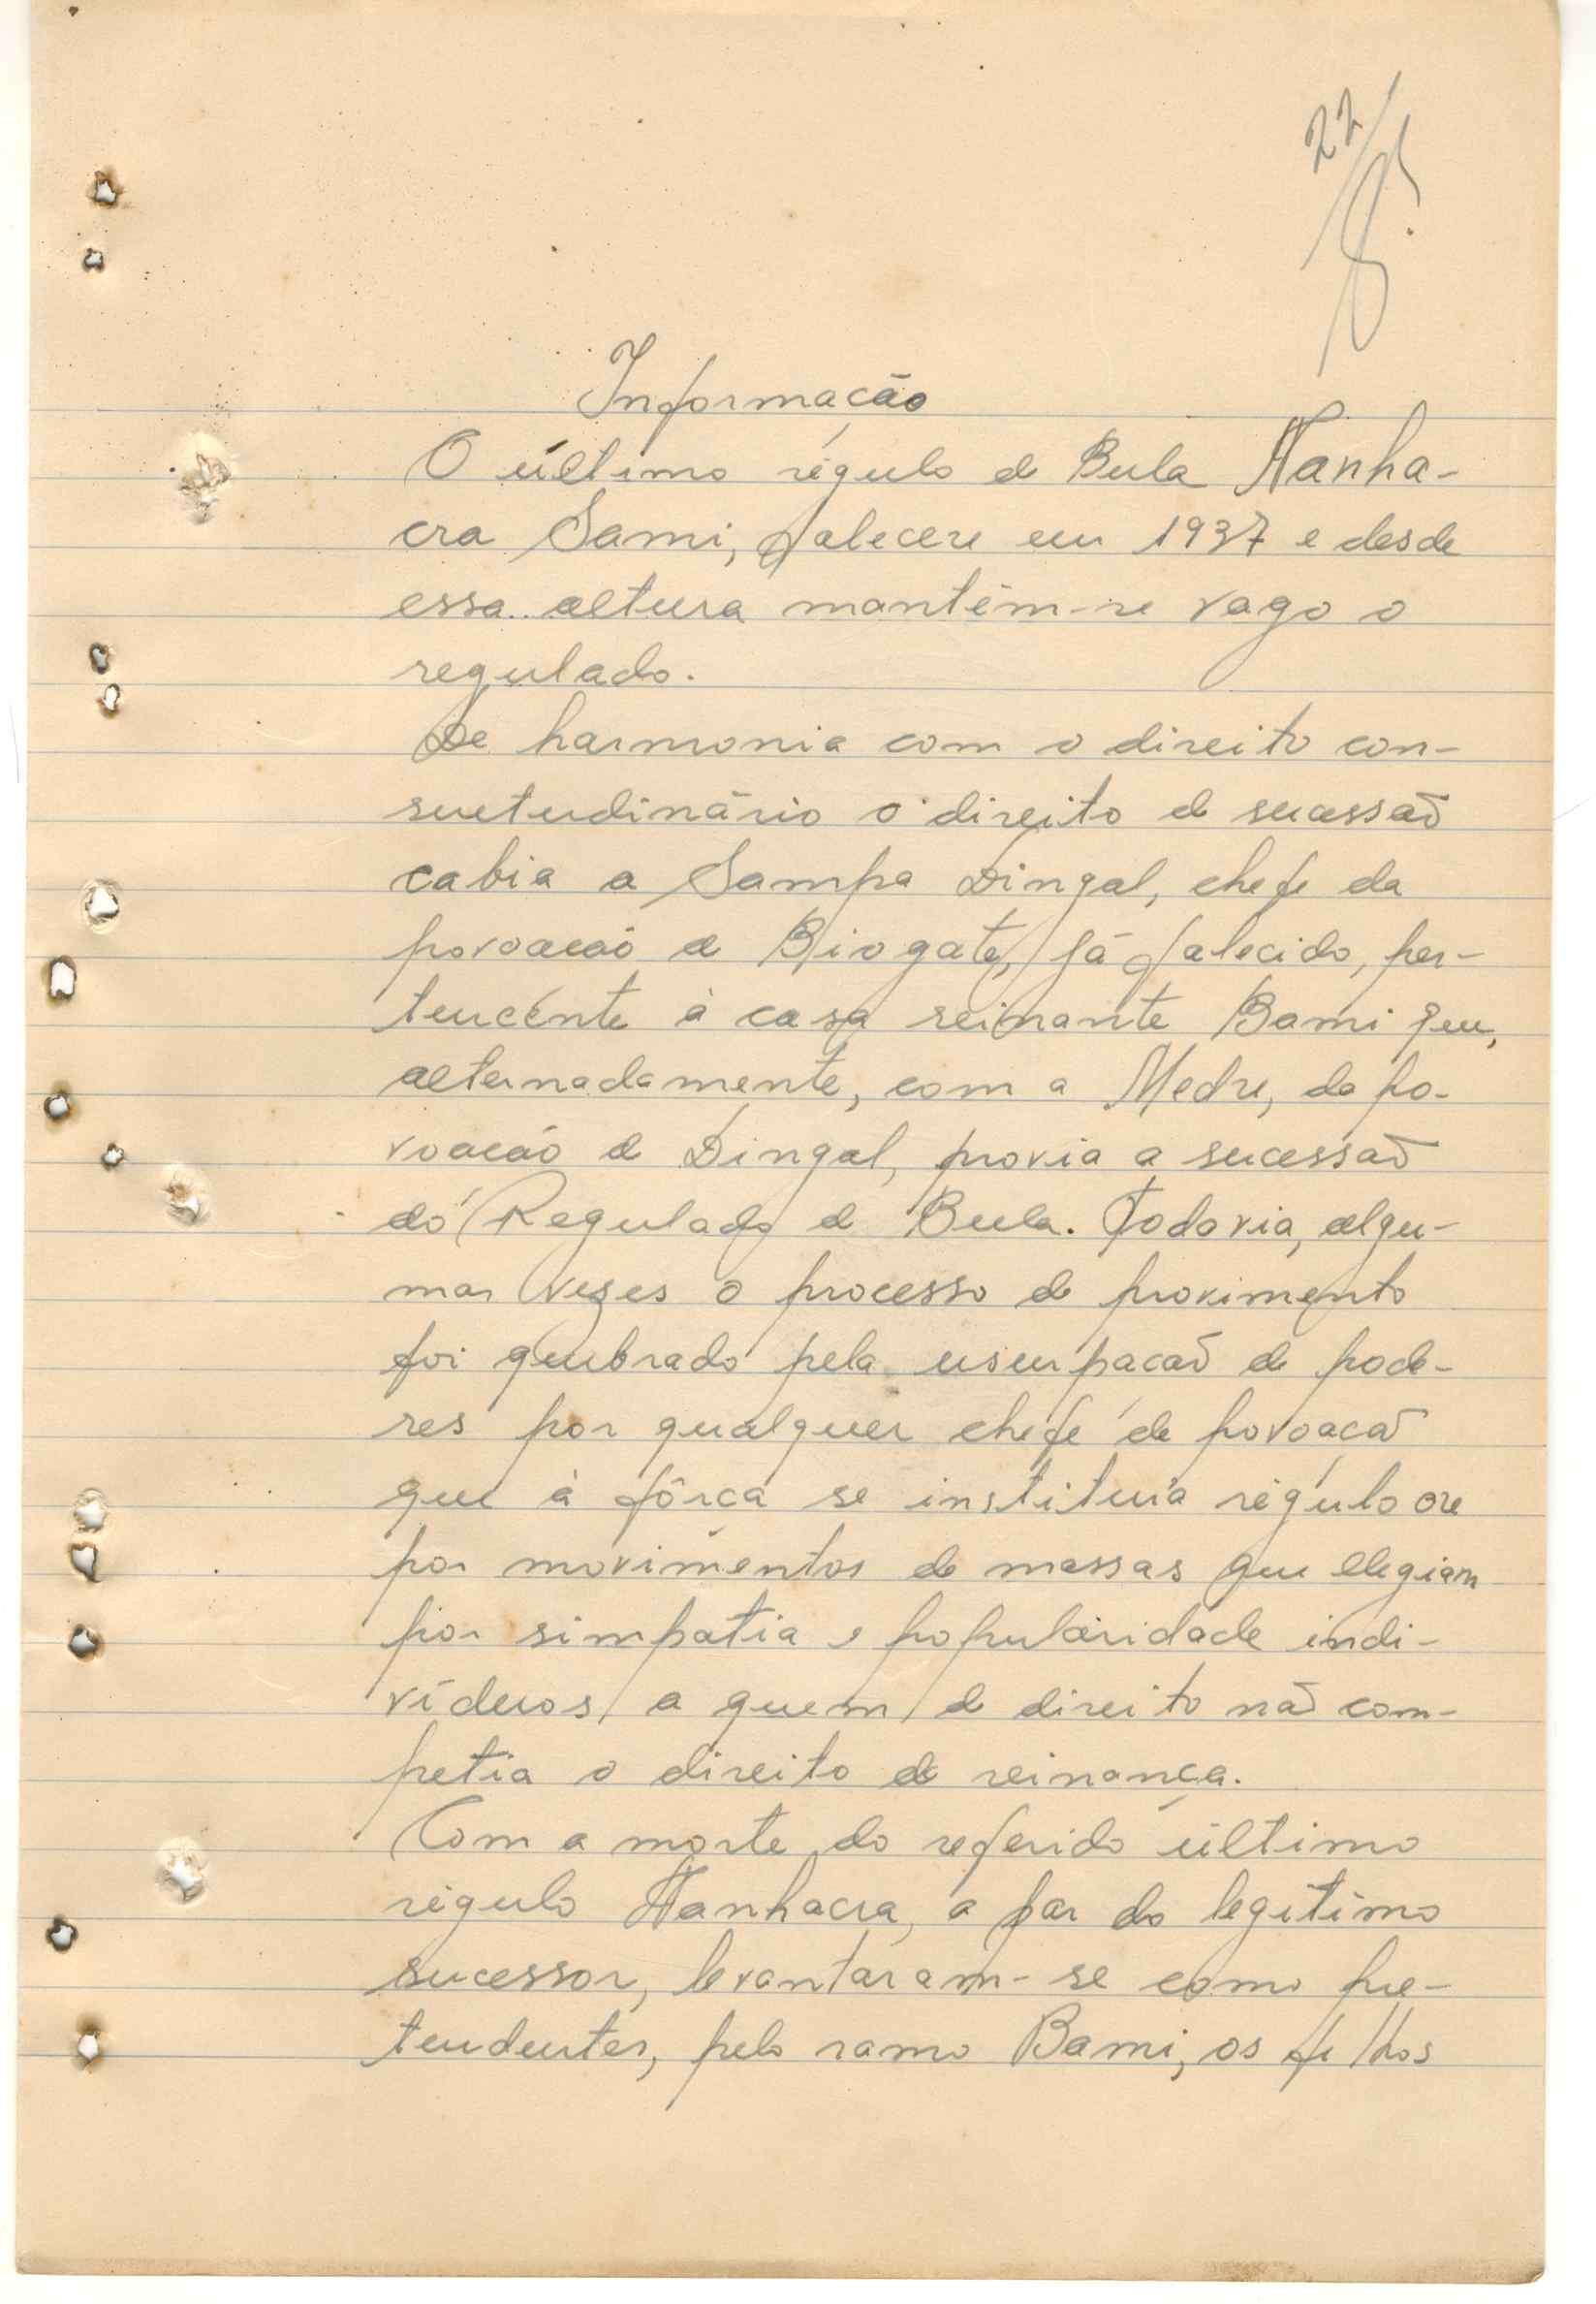 22
Informação
O último régulo de Bula Nanha-
cra Sami, faleceu em 1937 e desde
essa altura mantém-se vago o
regulado.
De harmonia com o direito con-
suetudinário o direito de sucessão
cabia a Sampa Dingal, chefe da
povoação de Biogate, já falecido, per-
tencente à casa reinante Bami que,
alternadamente, com a Medre, da po-
voação de Dingal, provia a sucessão
do Regulado de Bula. Todavia, algu-
mas vezes o processo de provimento
foi quebrado pela usurpação de pode-
res por qualquer chefe de povoação
que à fôrça se instituia régulo ou
por movimentos de massas que elegiam
por simpatia e popularidade indi-
víduos a quem de direito não com-
petia o direito de reinança.
Com a morte do referido último
régulo Nanhacra, a par do legítimo
sucessor, levantaram-se como pre-
tendentes, pelo ramo Bami, os filhos